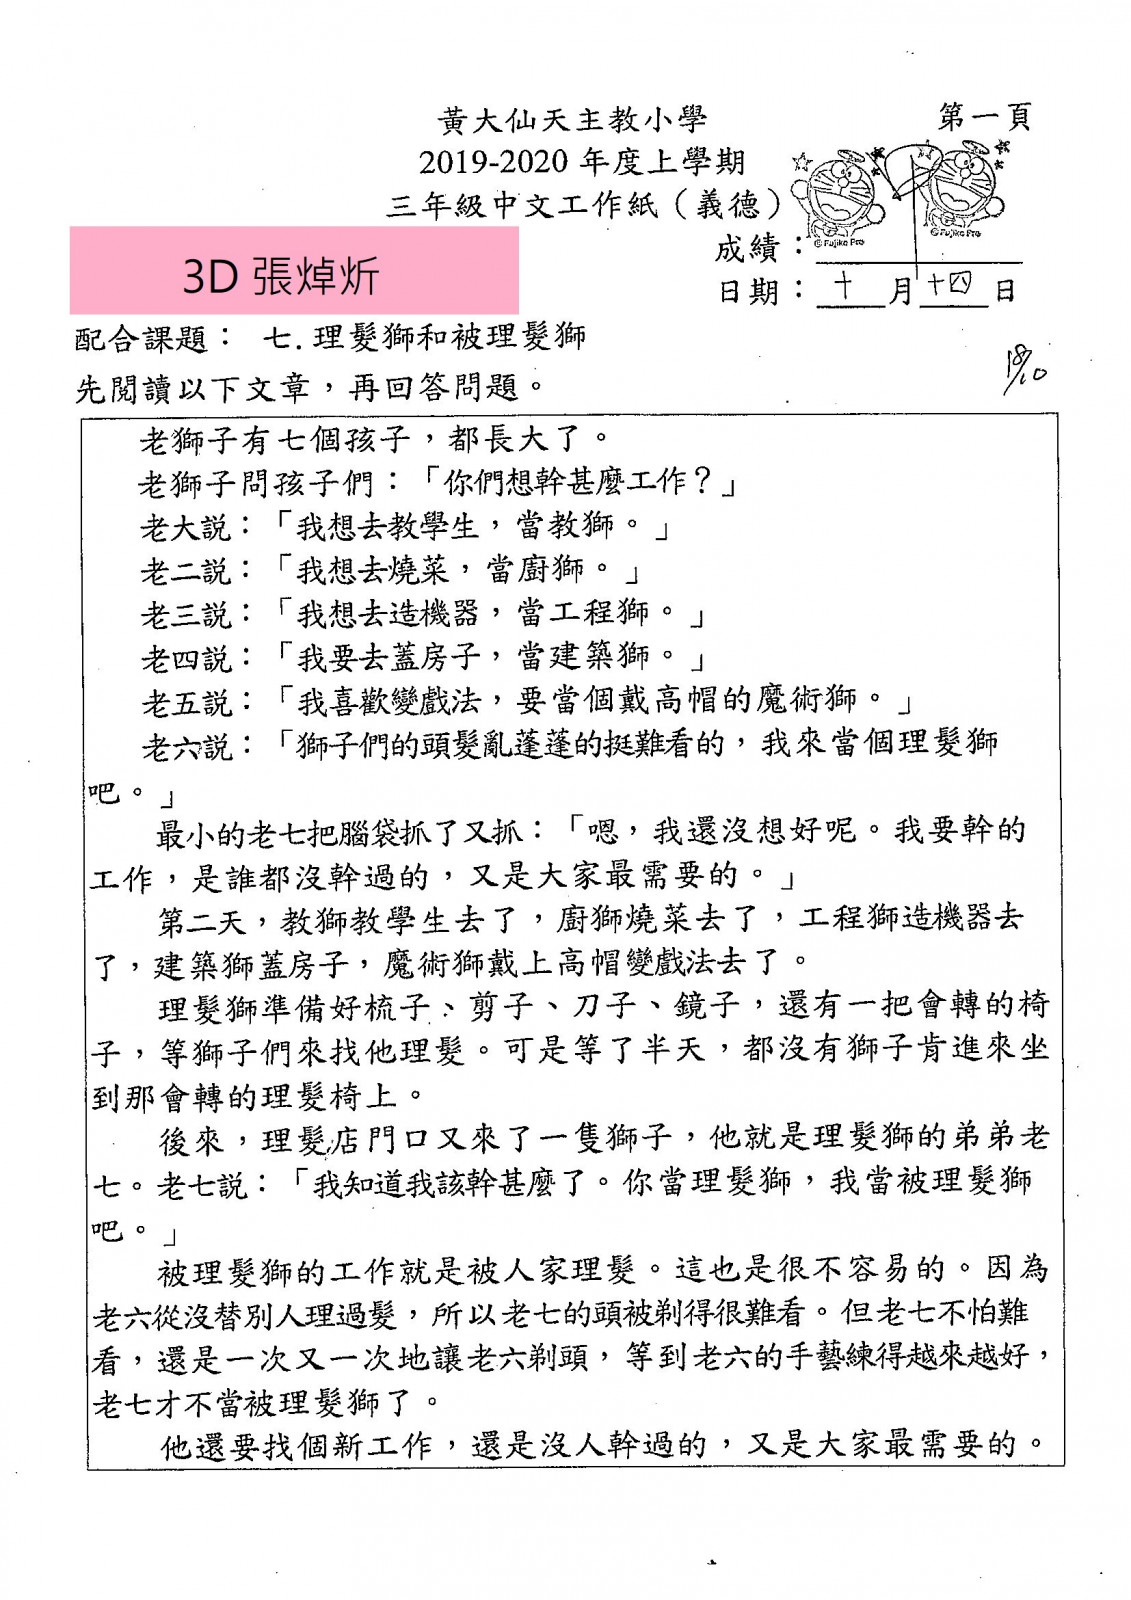 黃大仙天主教小學
第一頁
2019-2020 年度上學期
三年級中文工作紙（義德）
© Fujiko Pro
© Fujiko Pro
成績：
3D 張焯炘
日期：十月十四日
配合課題： 七.理髮獅和被理髮獅
18/10
先閱讀以下文章，再回答問題。
老獅子有七個孩子，都長大了。
老獅子問孩子們：「你們想幹甚麼工作？」
老大說：「我想去教學生，當教獅。」
老二說：「我想去燒菜，當廚獅。」
老三說：「我想去造機器，當工程獅。」
老四說：「我要去蓋房子，當建築獅。」
老五說：「我喜歡變戲法，要當個戴高帽的魔術獅。」
老六說：「獅子們的頭髮亂蓬蓬的挺難看的，我來當個理髮獅
吧。」
最小的老七把腦袋抓了又抓：「嗯，我還沒想好呢。我要幹的
工作，是誰都沒幹過的，又是大家最需要的。」
第二天，教獅教學生去了，廚獅燒菜去了，工程獅造機器去
了，建築獅蓋房子，魔術獅戴上高帽變戲法去了。
理髮獅準備好梳子、剪子、刀子、鏡子，還有一把會轉的椅
子，等獅子們來找他理髮。可是等了半天，都沒有獅子肯進來坐
到那會轉的理髮椅上。
後來，理髮店門口又來了一隻獅子，他就是理髮獅的弟弟老
七。老七說：「我知道我該幹甚麼了。你當理髮獅，我當被理髮獅
吧。」
被理髮獅的工作就是被人家理髮。這也是很不容易的。因為
老六從沒替別人理過髮，所以老七的頭被剃得很難看。但老七不怕難
看，還是一次又一次地讓老六剃頭，等到老六的手藝練得越來越好，
老七才不當被理髮獅了。
他還要找個新工作，還是沒人幹過的，又是大家最需要的。